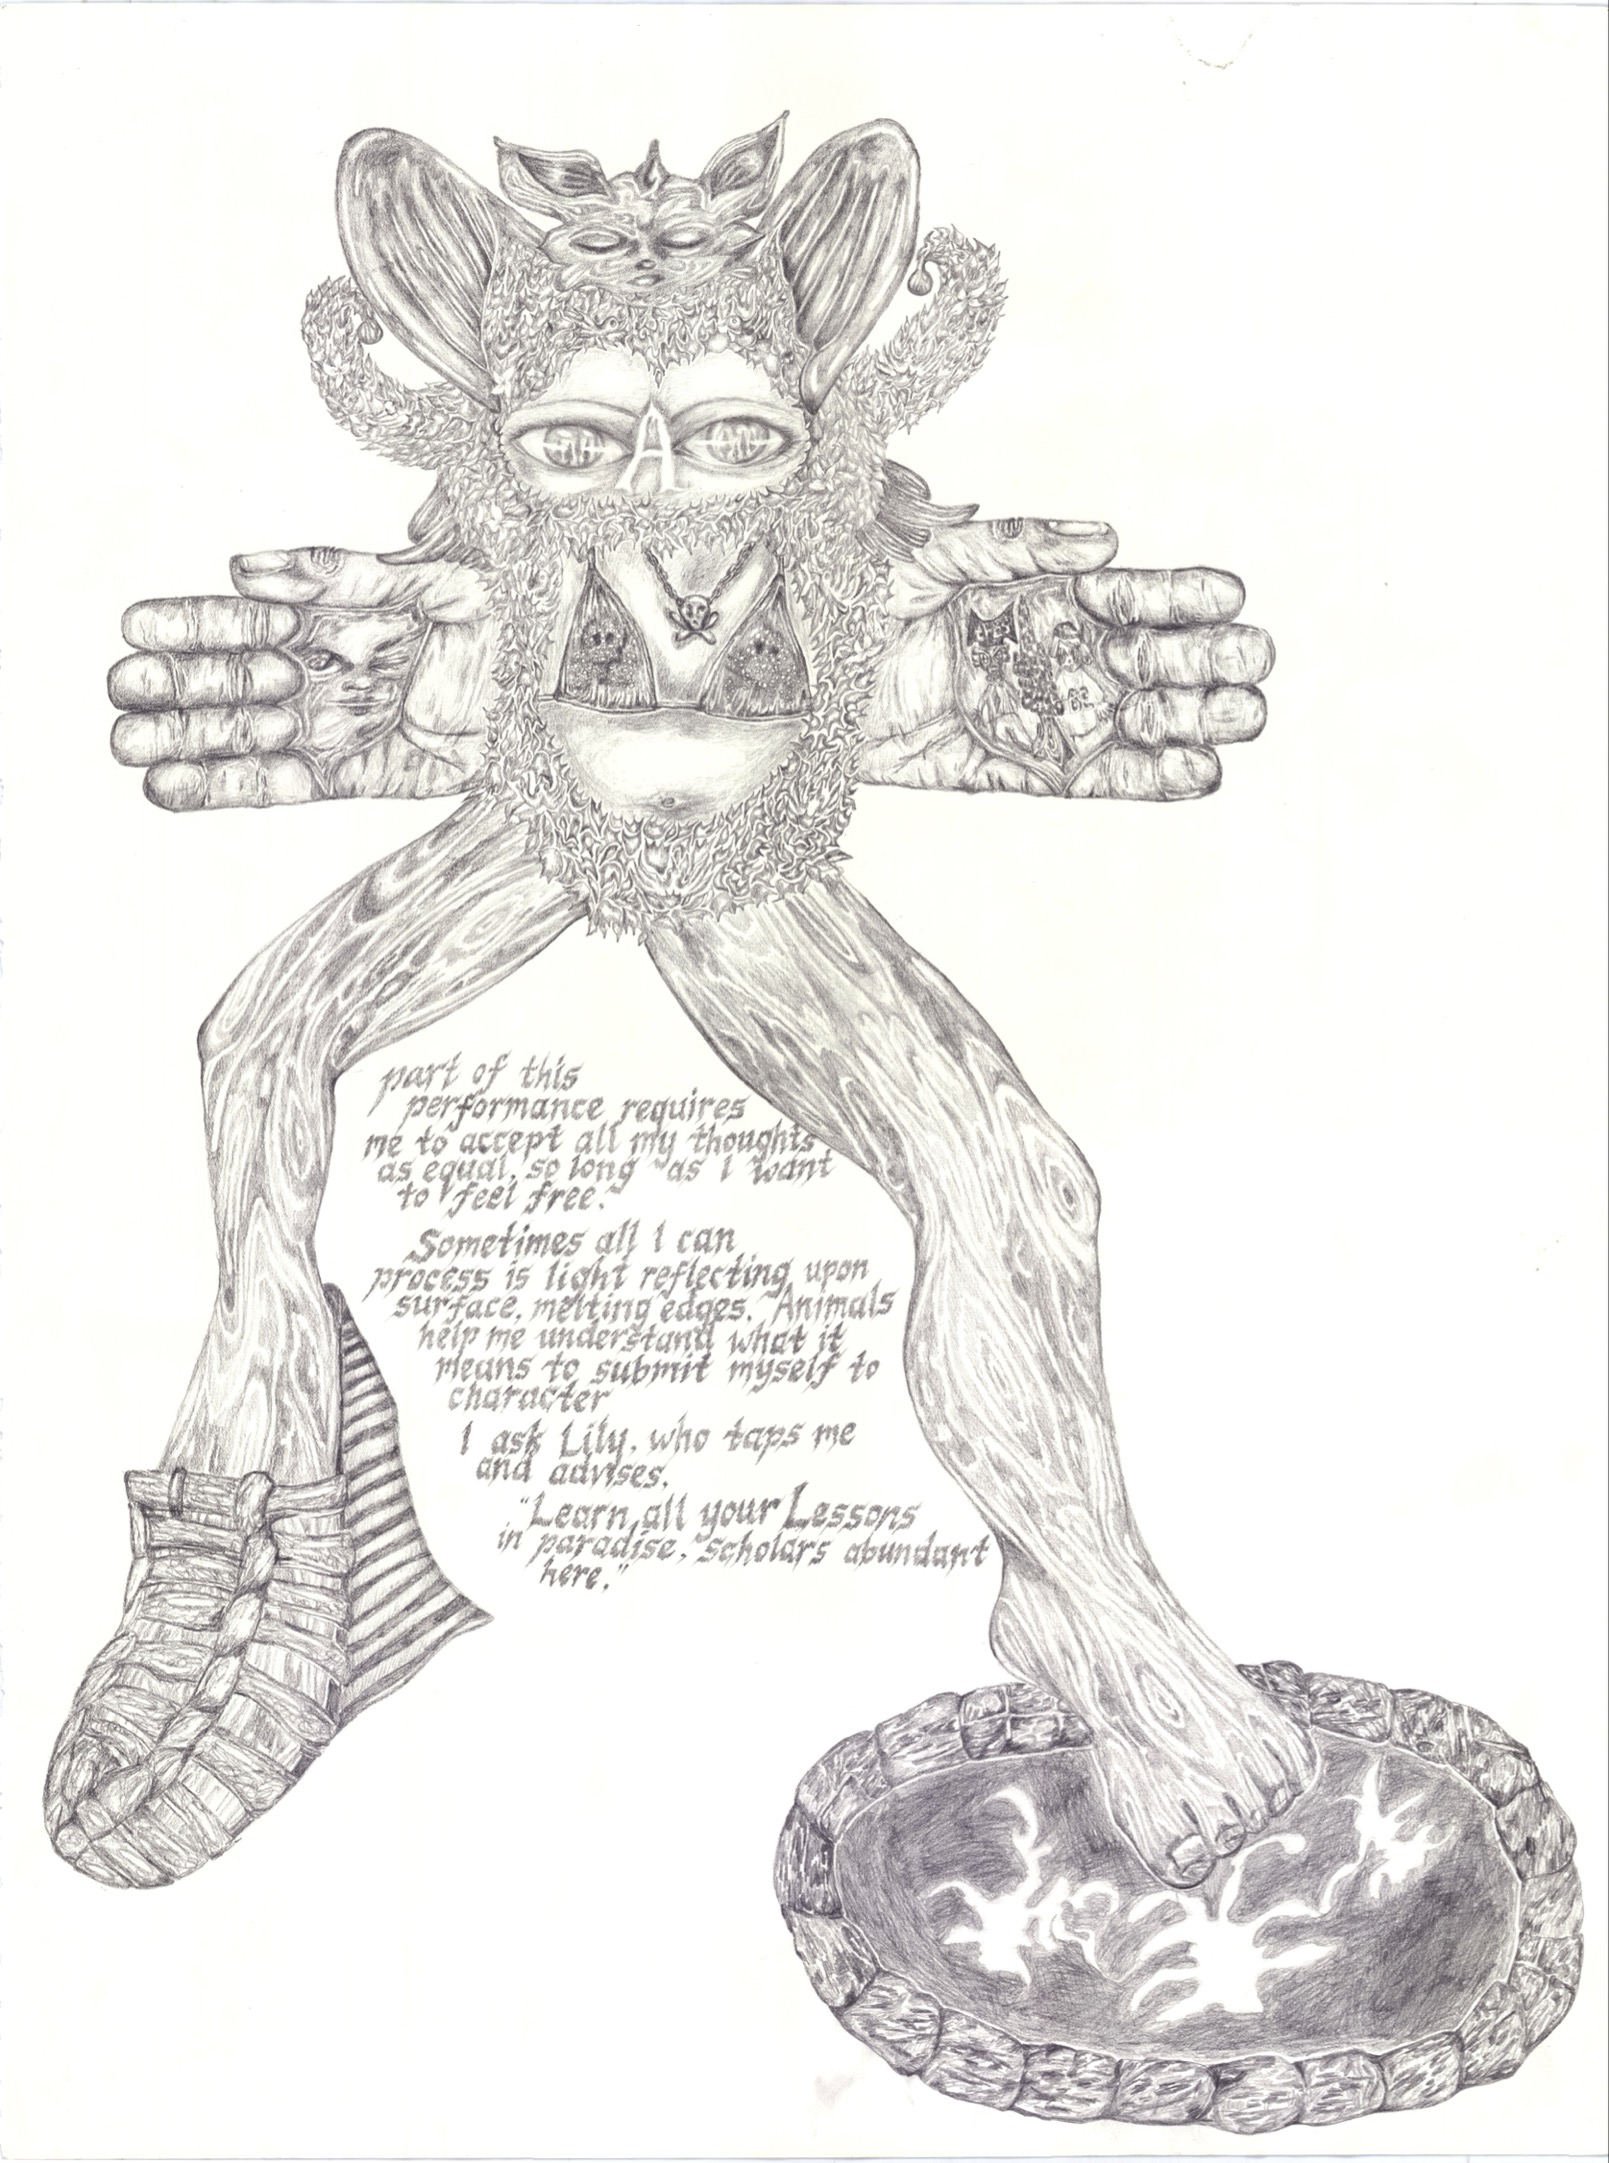 A
part of this
performance requires
me to accept all my thoughts
as equal, so long as I want
to feel free.
Sometimes all I can
process is light reflecting upon
surface, melting edges. Animals
help me understand what it
means to submit myself to
character
I ask Lily, who taps me
and advises,
"Learn all your Lessons
in paradise, scholars abundant
here."